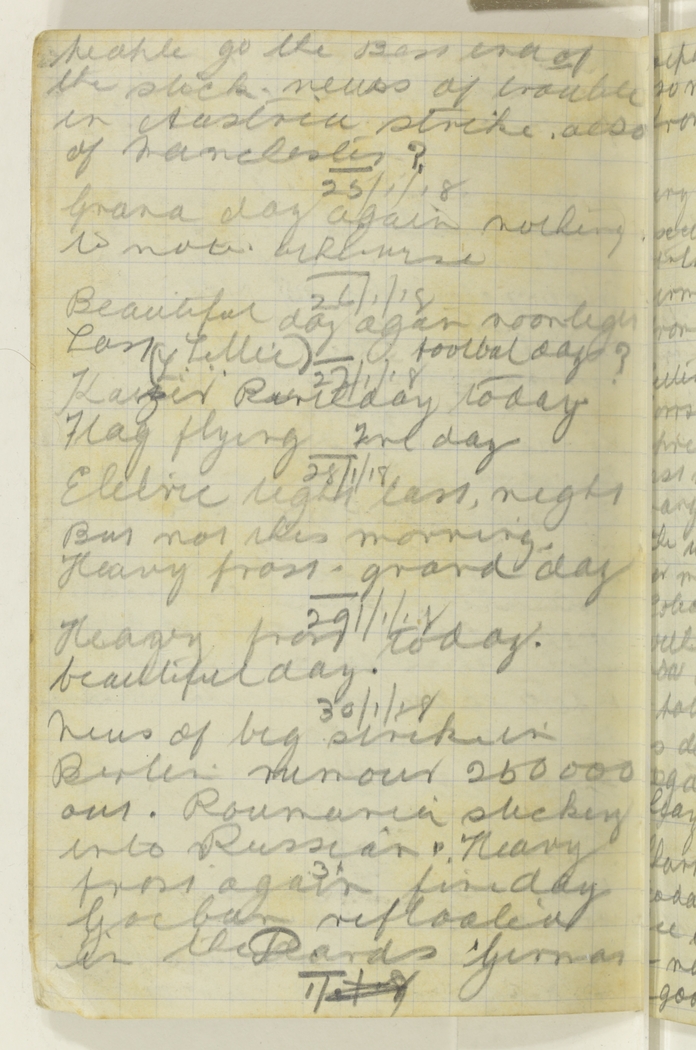 people go the Bass end of
the stick. news of trouble
in Austria strike. also
of Manchester ?
25/1/18
Grand day again nothing
to note.
26/1/18
Beautiful day again moonlight
Last (Y Lillie) football days ?
27/1/18
Kaiser day today
Flag flying day
28/1/18
Eletric light last, night
But not this morning.
Heavy frost - grand day
29/1/18
Heavy frost today.
beautiful day.
30/1/18
News of big strike in
Berlin rumour 250000
out. Roumania sticking
into Russian. Heavy
31
frost again fine day
Goeban refloated
in the Dards German